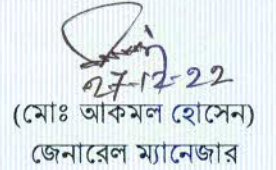 27-12-22
(মোঃ আকমল হোসেন)
জেনারেল ম্যানেজার